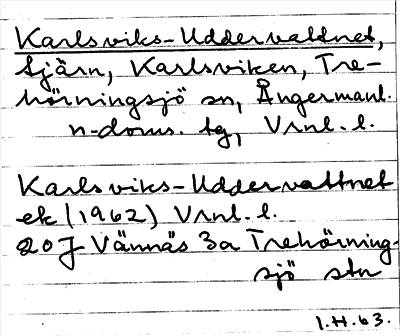 Karlsviks-Uddervattnet,
tjärn, Karlsviken, Tre-
hörningsjö sn, Ångermanl.
n-doms. tg, Vrnl. l.
Karlsviks-Uddervattnet
ek (1962) Vrnl. l.
20J Vännäs 3a Trehörning-
sjö stn
I.H.63.